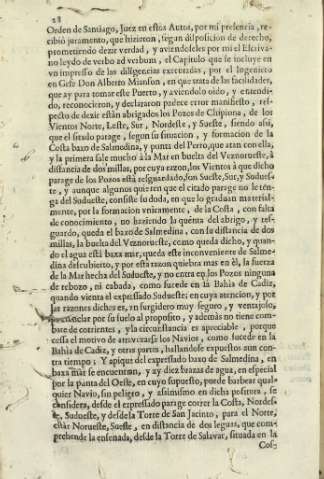 28
Orden de Santiago, Juez en estos Autos, por mi presencia, re-
cibiò juramento, que hizieron, segun disposicion de derecho,
prometiendo dezir verdad, y aviendoseles por mi el Escriva-
no leydo de verbo ad verbum, el Capitulo que se incluye en
vn impresso de las diligencias executadas, por el Ingeniero
en Gefe Don Alberto Mianson, en que trata de las facilidades,
que ay para tomar este Puerto, y aviendolo oìdo, y entendi-
do, reconocieron, y declararon padece error manifiesto, res-
pecto de dezir estàn abrigados los Pozos de Chipiona, de los
Vientos Norte, Leste, Sur, Nordeste, y Sueste, siendo assi,
que el citado parage, segun su situacion, y formacion de la
Costa baxo de Salmedina, y punta del Perro, que atan con ella,
y la primera sale mucho à la Mar en buelta del Veznorueste, à
distancia de dos millas, por cuya razon, los Vientos à que dicho
parage de los Pozos està resguardado, son Sueste, Sur, y Sudues-
te, y aunque algunos quieren que el citado parage no le ten-
ga del Sudueste, consiste su doda, en que lo graduan material-
mente, por la formacion vnicamente, de la Costa, con falta
de conocimiento, no haziendo la quenta del abrigo, y res-
guardo, queda el baxo de Salmedina, con su distancia de dos
millas, la buelta del Veznorueste, como queda dicho, y quan-
do el agua està baxa mar, queda este inconveniente de Salme-
dina descubierto, y por esta razon quiebra mas en èl, la fuerza
de la Mar hecha del Sudueste, y no entra en los Pozos ninguna
de rebozo, ni cabada, como sucede en la Bahia de Cadiz,
quando vienta el expressado Sudueste: en cuya atencion, y por
las razones dichas es, vn surgidero muy seguro, y ventajoso,
por su suelo al proposito, y ademàs no tiene com-
bate de corrientes, y la circunstancia es apreciable, porque
cessa el motivo de atravesarse los Navios, como sucede en la
Bahia de Cadiz, y otras partes, hallandose expuestos aun con-
tra tiempo: Y à pique del expressado baxo de Salmedina, en
baxa mar se encuentran, y ay diez brazas de agua, en especial
por la punta del Oeste, en cuyo supuesto, puede barbear qual-
quier Navio, sin peligro, y assimismo en dicha postura, se
considera, desde el expressado parage correr la Costa, Nordes-
te, Sudueste, y desde la Torre de San Jacinto, para el Norte,
estàr Norueste, Sueste, en distancia de dos leguas, que com-
prehende la ensenada, desde la Torre de Salavar, situada en la
Cos-